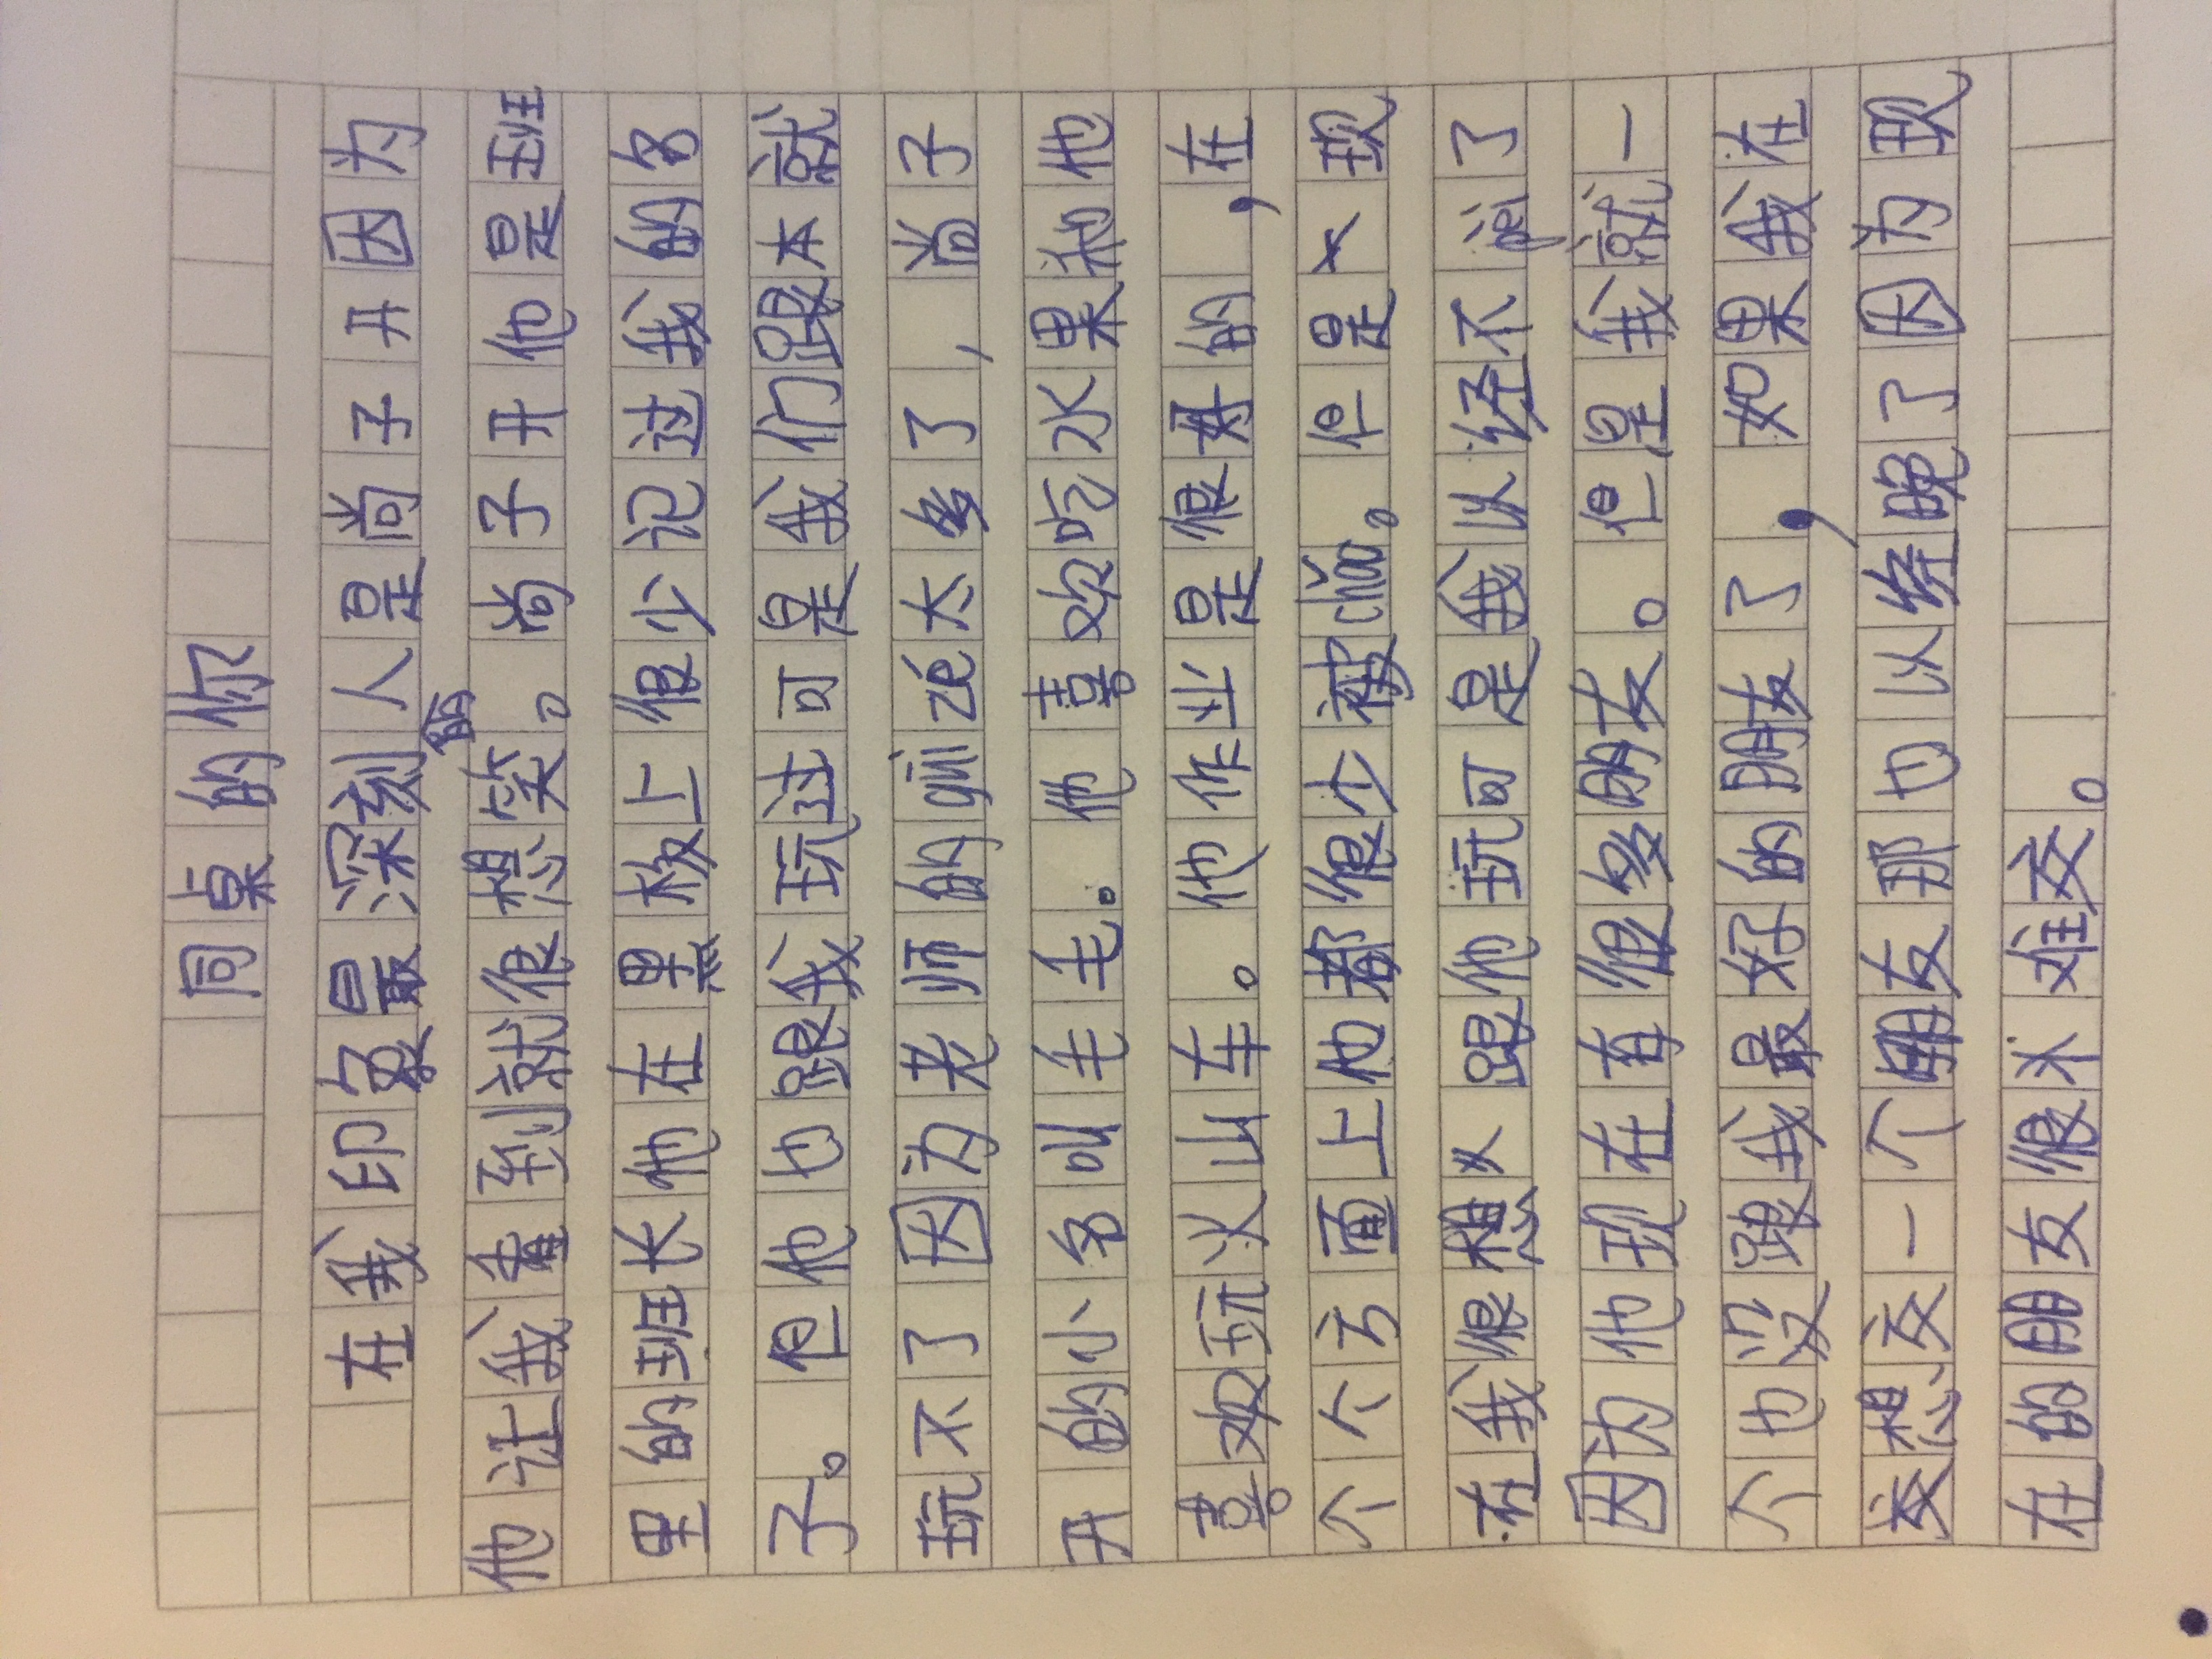 同桌的你
在我印象最深刻人是尚子开因为
的
他让我看到就很想笑。尚子开他是班
里的班长他在黑板上很少记过我的名
子。但他也跟我玩过可是我们跟本就
玩不了因为老师的guī zé太多了,尚子
开的小名叫毛毛。他喜欢吃水果和他
喜欢玩火山车。他作业是很好的,在
个个方面上他都很少被chǎo。但是又现
在我很想又跟他玩可是我以经不了
因为他现在有很多朋友。但是我就一
个也没跟我最好的朋友了,如果我在
交想交一个朋友那也以经晚了因为现
在的朋友很难交。